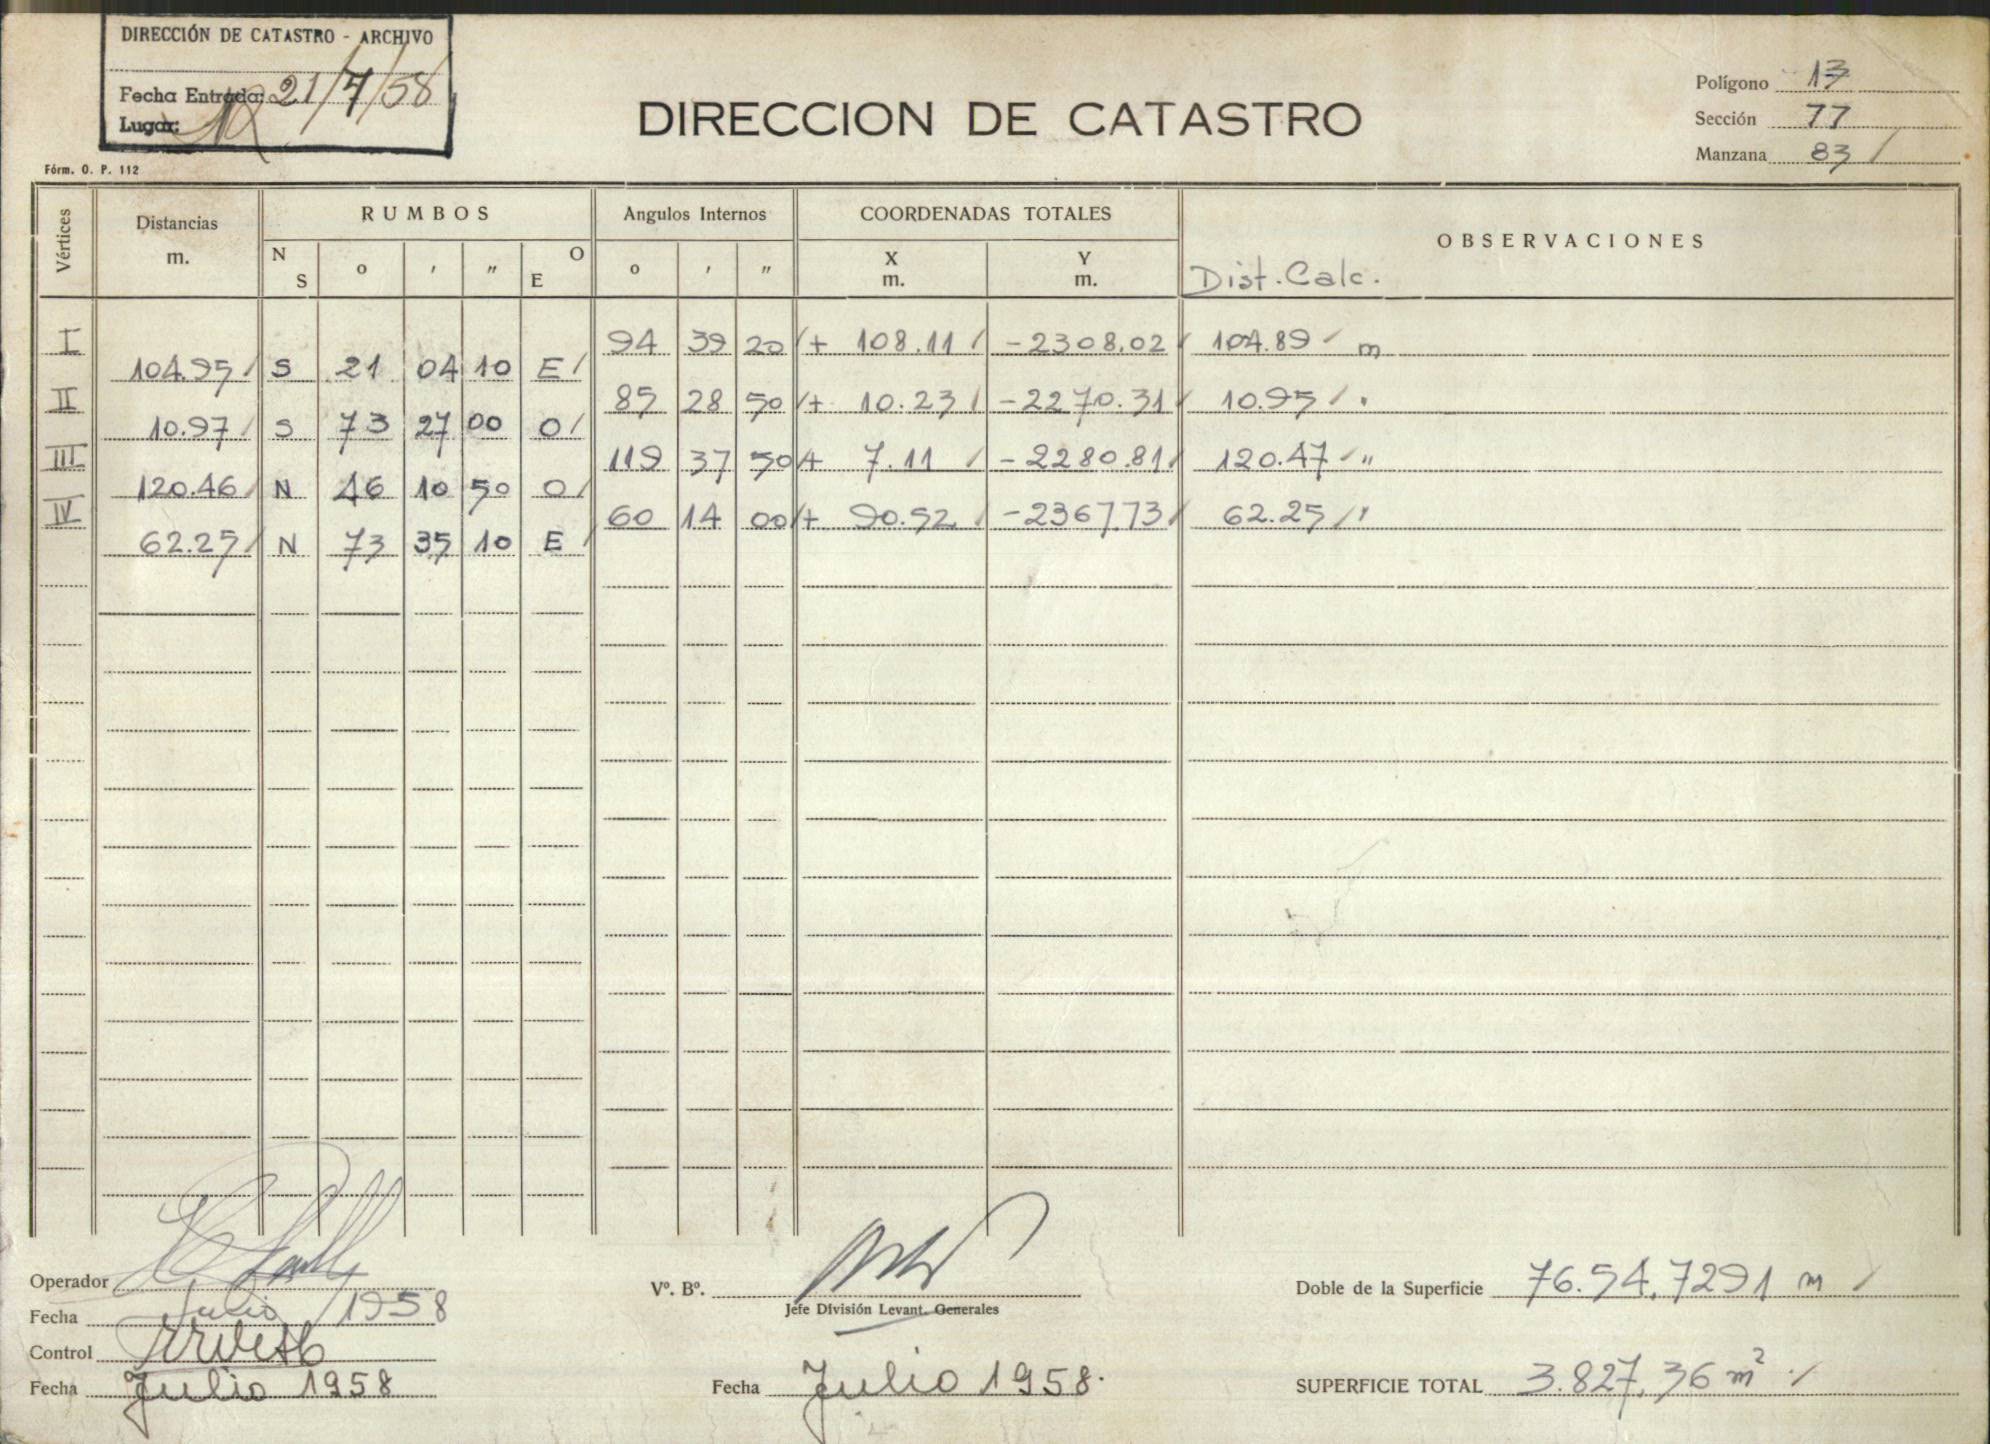 DIRECCIÓN DE CATASTRO - ARCHIVO
Fecha Entrada: 21/7/58
Lugar:
Fórm. O. P. 112
DIRECCION DE CATASTRO
Polígono 13
Sección 77
Manzana 83 /
Vértices Distancias m. RUMBOS Angulos Internos COORDENADAS TOTALES OBSERVACIONES
N S o ' " O E o ' " X m. Y m. Dist. Calc.
I 94 39 20 / + 108.11 / -2308.02 / 104.89 / m
104.95 / S 21 04 10 E /
II 85 28 50 / + 10.23 / -2270.31 / 10.95 / "
10.97 / S 73 27 00 O /
III 119 37 50 / + 7.11 / -2280.81 / 120.47 / "
120.46 / N 46 10 50 O /
IV 60 14 00 / + 90.52 / -2367.73 / 62.25 / "
62.25 / N 73 35 10 E /
Operador
Fecha Julio 1958
Control
Fecha Julio 1958
Vº. Bº.
Jefe División Levant. Generales
Fecha Julio 1958.
Doble de la Superficie 76.54,7291 m /
SUPERFICIE TOTAL 3.827,36 m² /